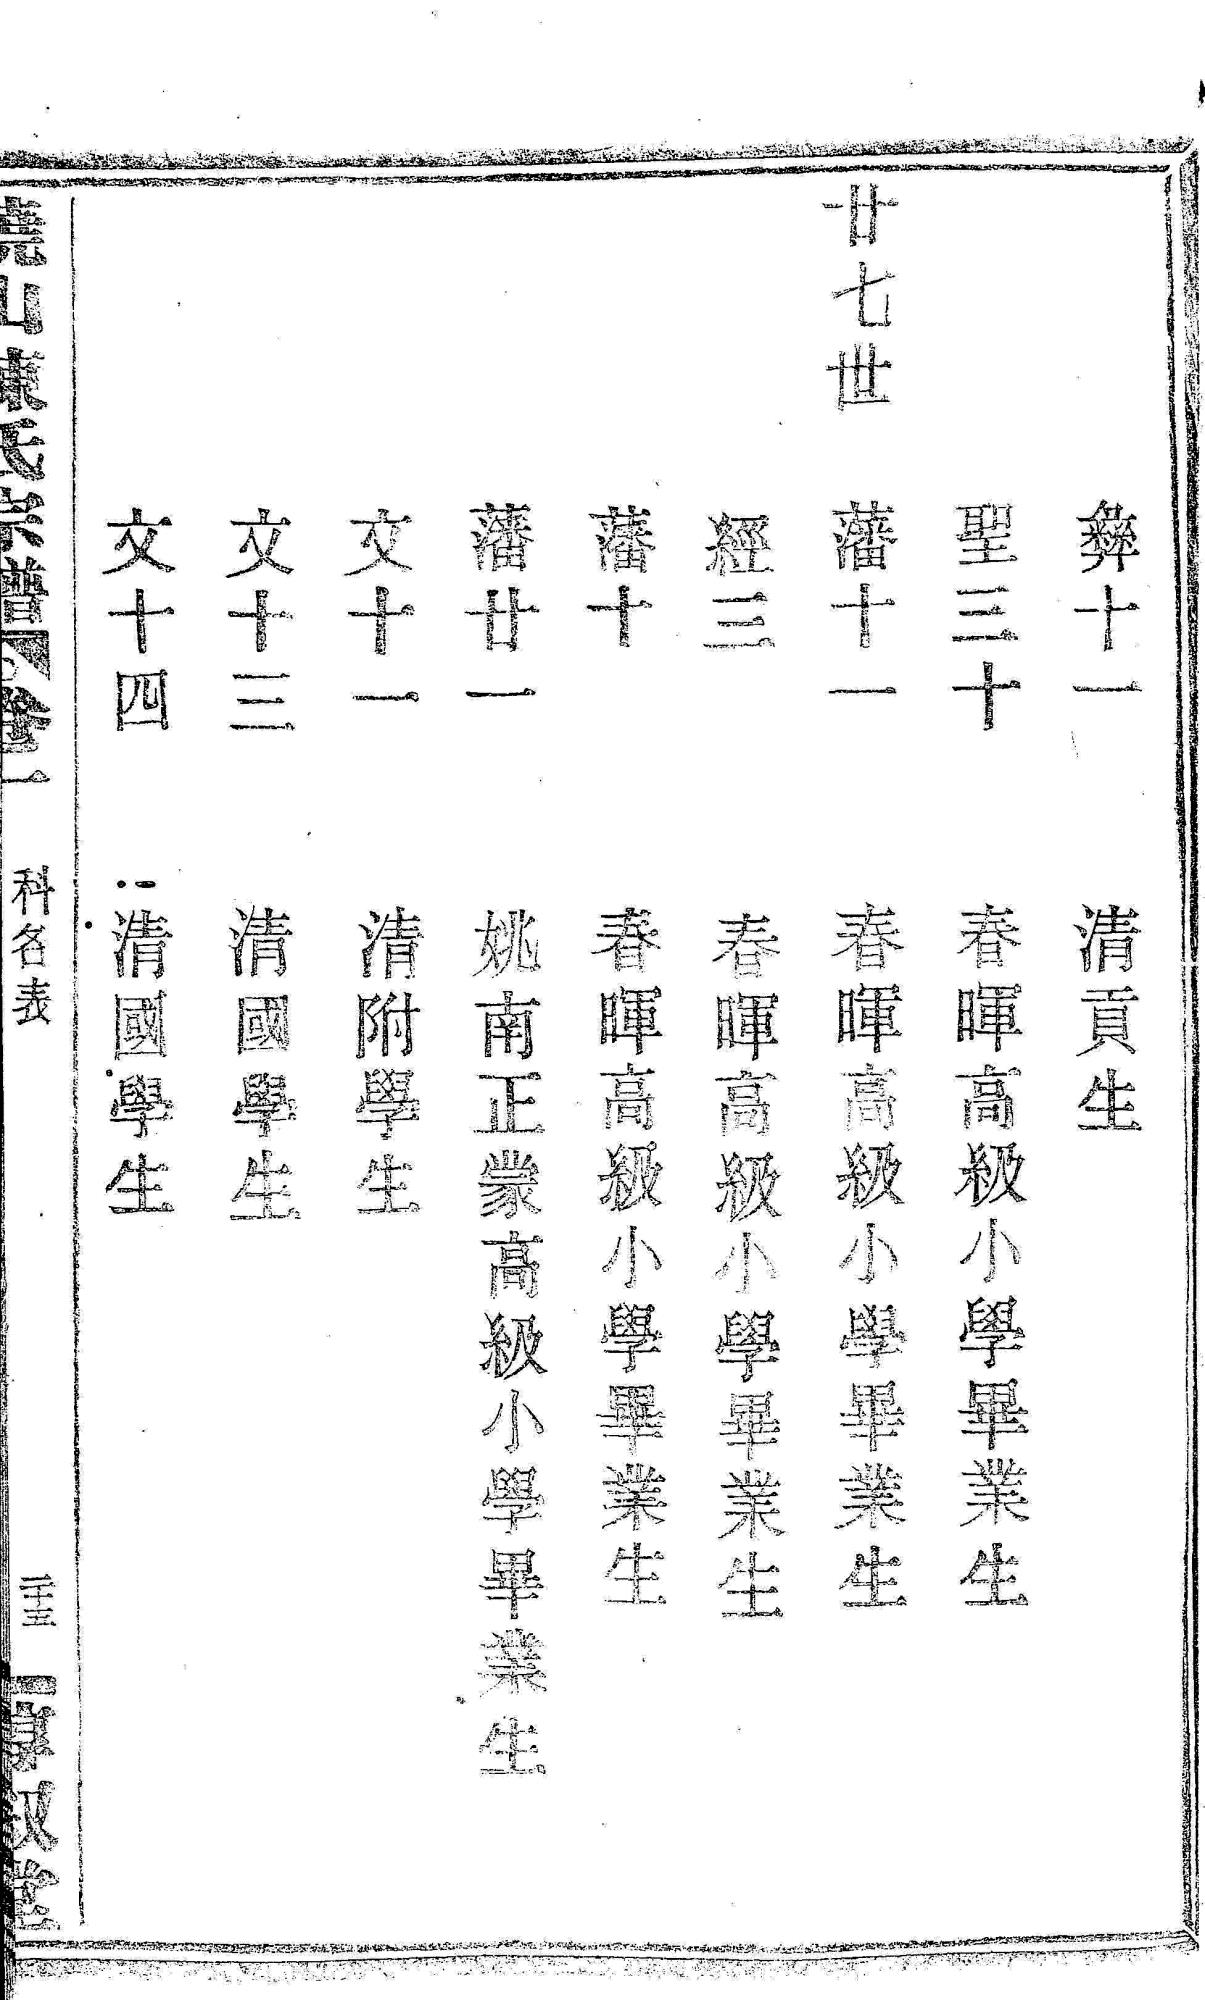 彝十一 清貢生
聖三十 春暉高級小學畢業生
廿七世 藩十一 春暉高級小學畢業生
經三 春暉高級小學畢業生
藩十 春暉高級小學畢業生
藩廿一 姚南正蒙高級小學畢業生
文十一 清附學生
文十三 清國學生
文十四 清國學生
山陳氏宗譜 卷一 科名表 二十五 敘堂